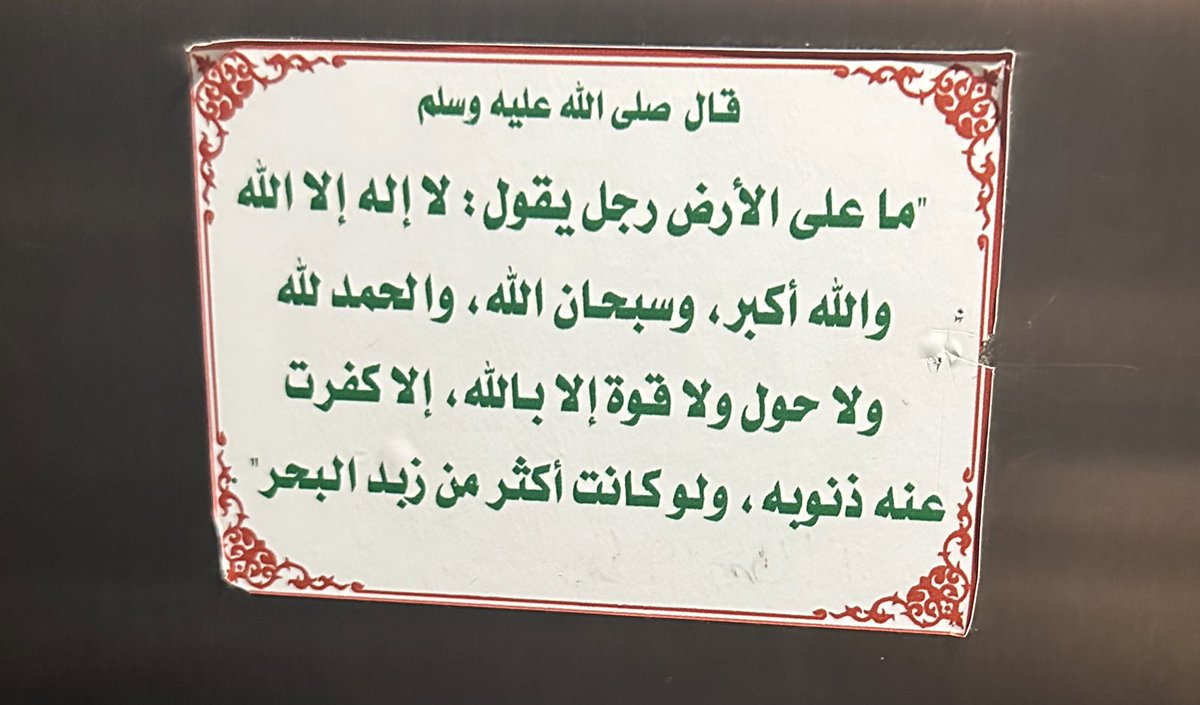 قال صلى الله عليه وسلم
"ما على الأرض رجل يقول: لا إله إلا الله
والله أكبر، وسبحان الله، والحمد لله
ولا حول ولا قوة إلا بالله، إلا كفرت
عنه ذنوبه، ولو كانت أكثر من زبد البحر"